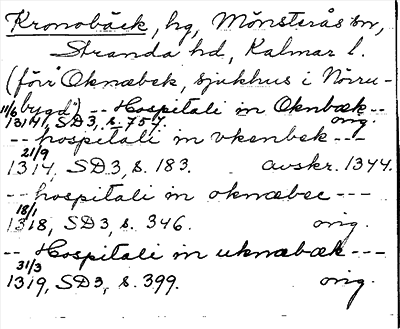 Kronobäck, hg, Mönsterås sn,
Stranda hd, Kalmar l.
(förr Oknæbek, sjukhus i Norru-
bygd) -- Hospitali in Oknbæk --
11/6 1314, SD3, s. 757. orig.
-- hospitali in vkenbek ---
21/9
1314, SD3, s. 183. avskr. 1344.
-- hospitali in oknæbec ---
18/1
1318, SD3, s. 346. orig.
-- Hospitali in uknæbæk ---
31/3
1319, SD3, s. 399. orig.